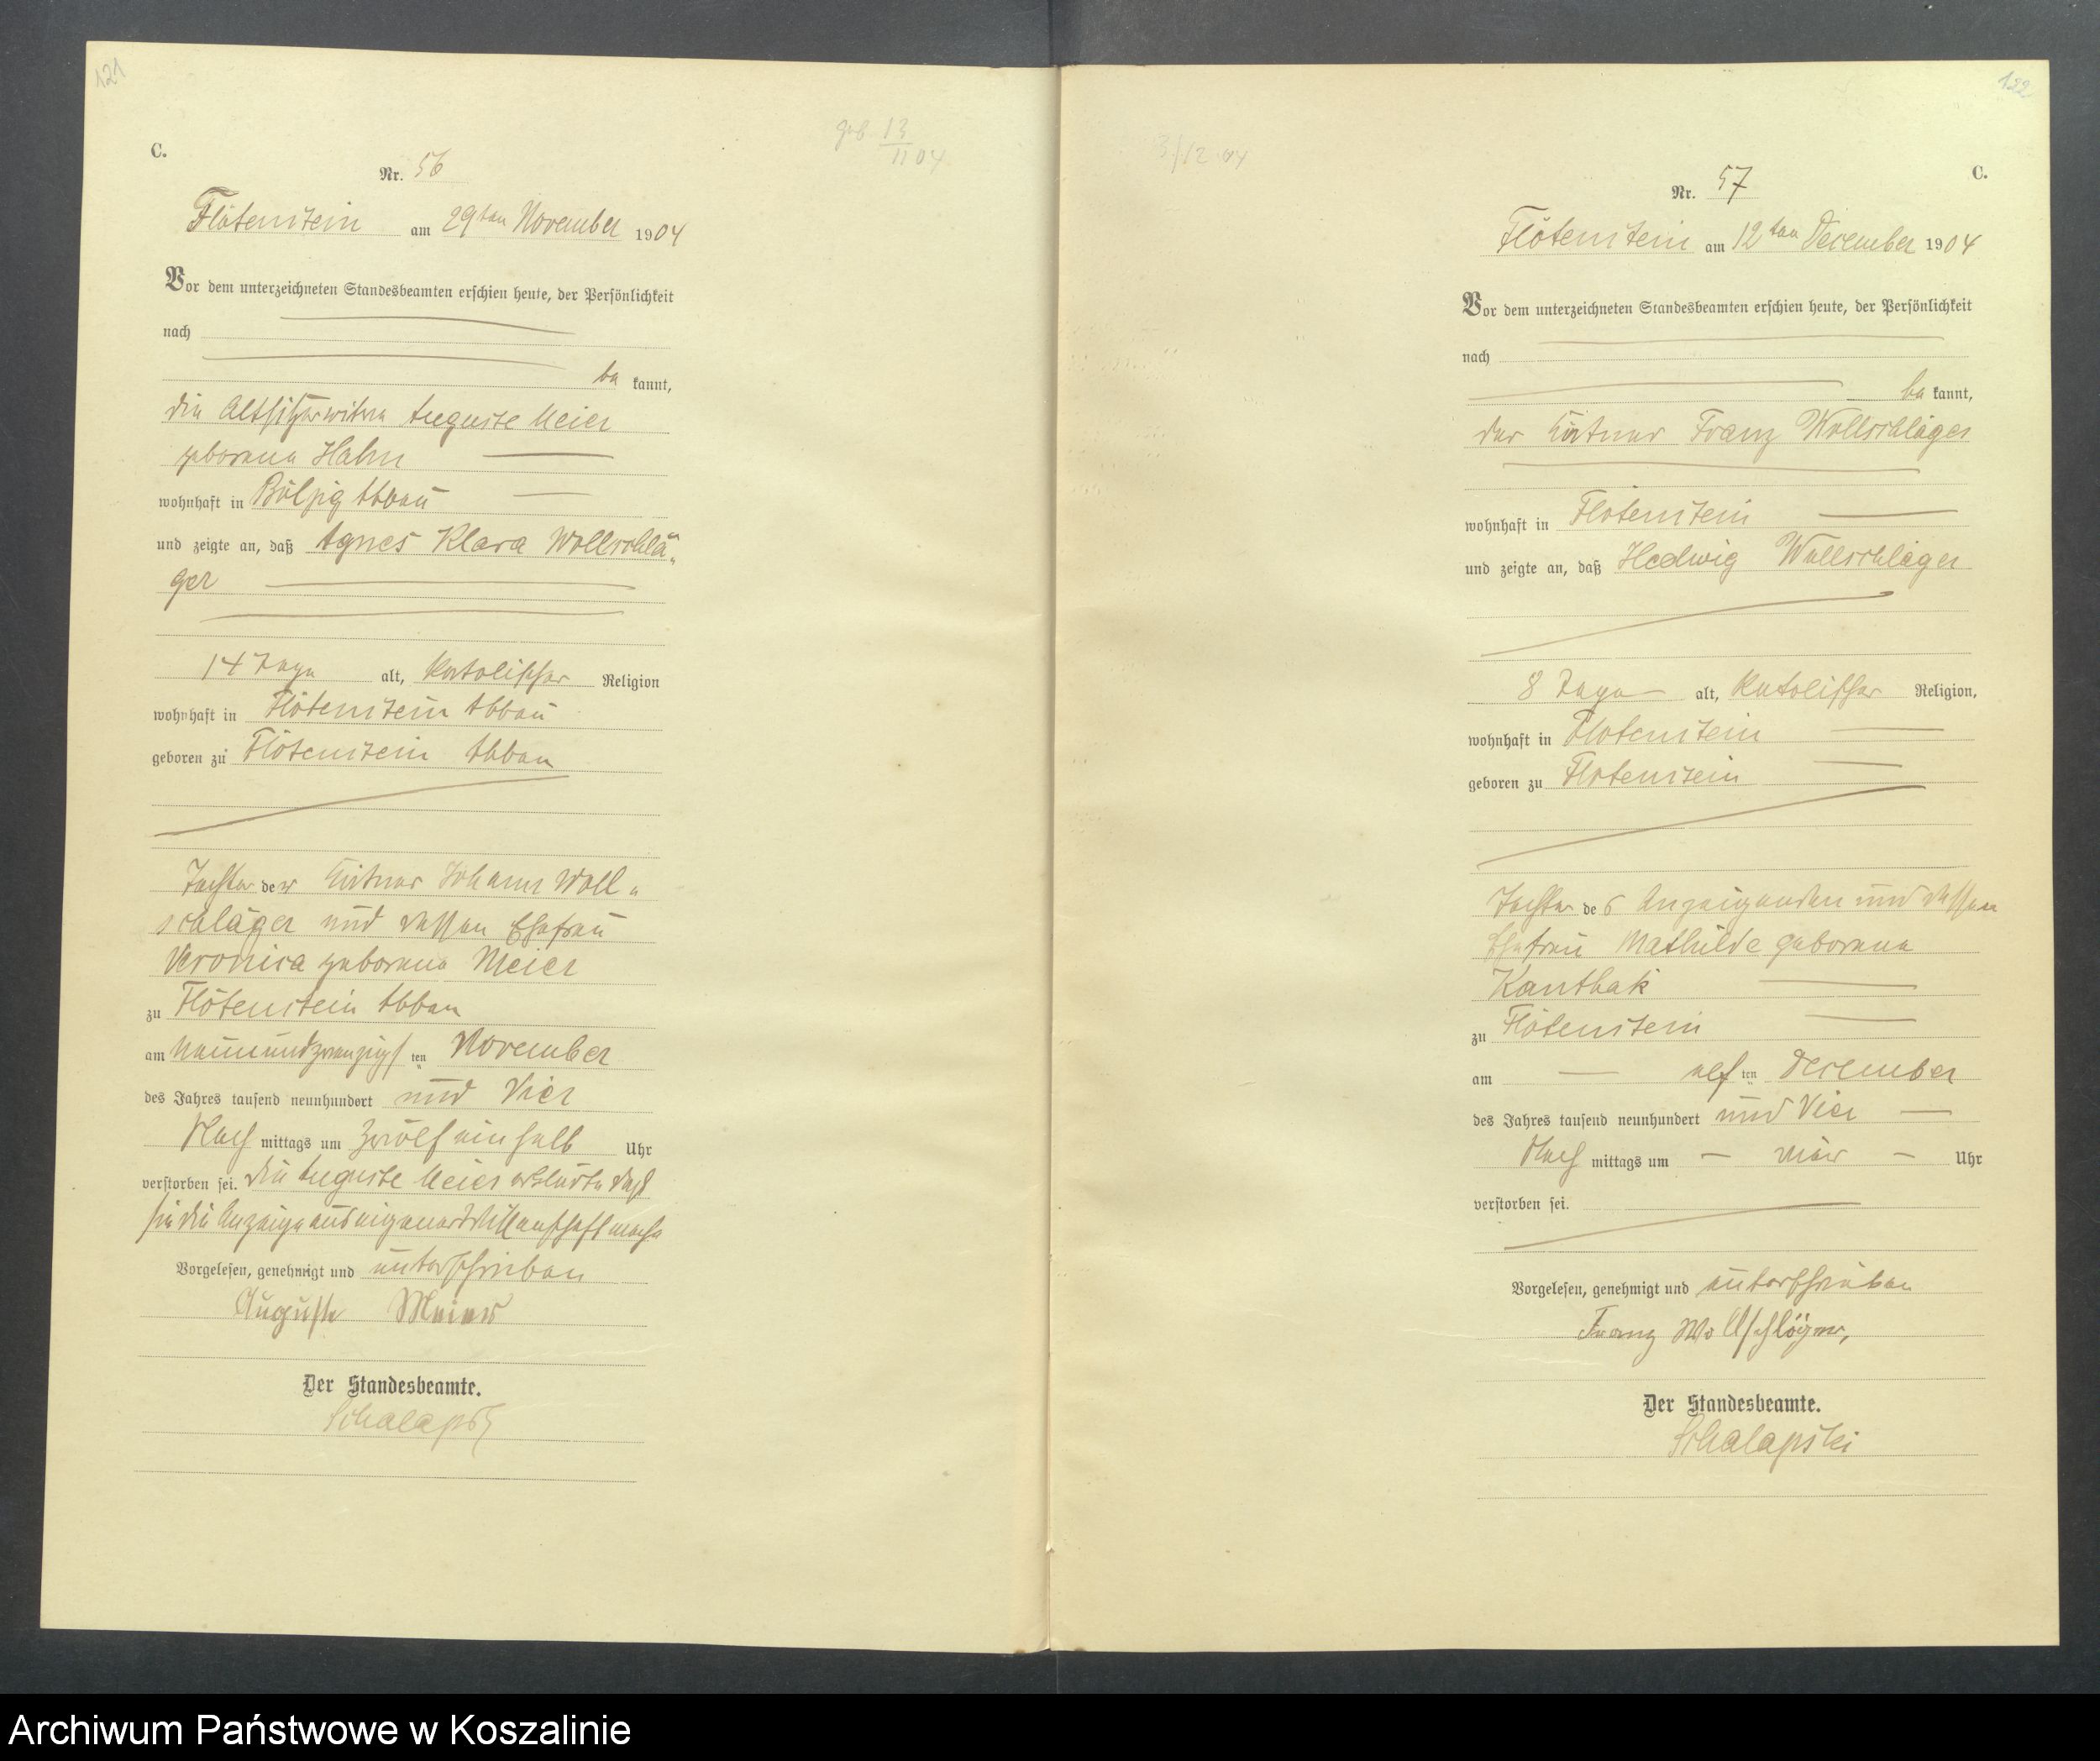 121
geb. 13/11 04
C.
Nr. 56
Flötenstein am 29ten November 1904
Vor dem unterzeichneten Standesbeamten erschien heute, der Persönlichkeit
nach
be kannt,
die Altsitzerwitwe Auguste Meier
geborene Hahn
wohnhaft in Bölzig Abbau
und zeigte an, daß Agnes Klara Wollschlä„
ger
14 Tage alt, katolischer Religion
wohnhaft in Flötenstein Abbau
geboren zu Flötenstein Abbau
Tochter der Kätner Johann Woll„
schläger und dessen Ehefrau
Veronica geborene Meier
zu Flötenstein Abbau
am neunundzwanzigsten November
des Jahres tausend neunhundert und Vier
Nach mittags um zwölf ein halb Uhr
verstorben sei. Die Auguste Meier erklärte daß
sie die Anzeige aus eigener Wissenschaft mache
Vorgelesen, genehmigt und unterschrieben
Auguste Meier
Der Standesbeamte.
Schalapski
122
3/12 04
C.
Nr. 57
Flötenstein am 12ten December 1904
Vor dem unterzeichneten Standesbeamten erschien heute, der Persönlichkeit
nach
be kannt,
der Kätner Franz Wollschläger
wohnhaft in Flötenstein
und zeigte an, daß Hedwig Wollschläger
8 Tage alt, katolischer Religion,
wohnhaft in Flötenstein
geboren zu Flötenstein
Tochter des Anzeigenden und dessen
Ehefrau Mathilde geborene
Kanthak
zu Flötenstein
am elften December
des Jahres tausend neunhundert und Vier
Nach mittags um vier Uhr
verstorben sei.
Vorgelesen, genehmigt und unterschrieben
Franz Wollschläger,
Der Standesbeamte.
Schalapski
Archiwum Państwowe w Koszalinie